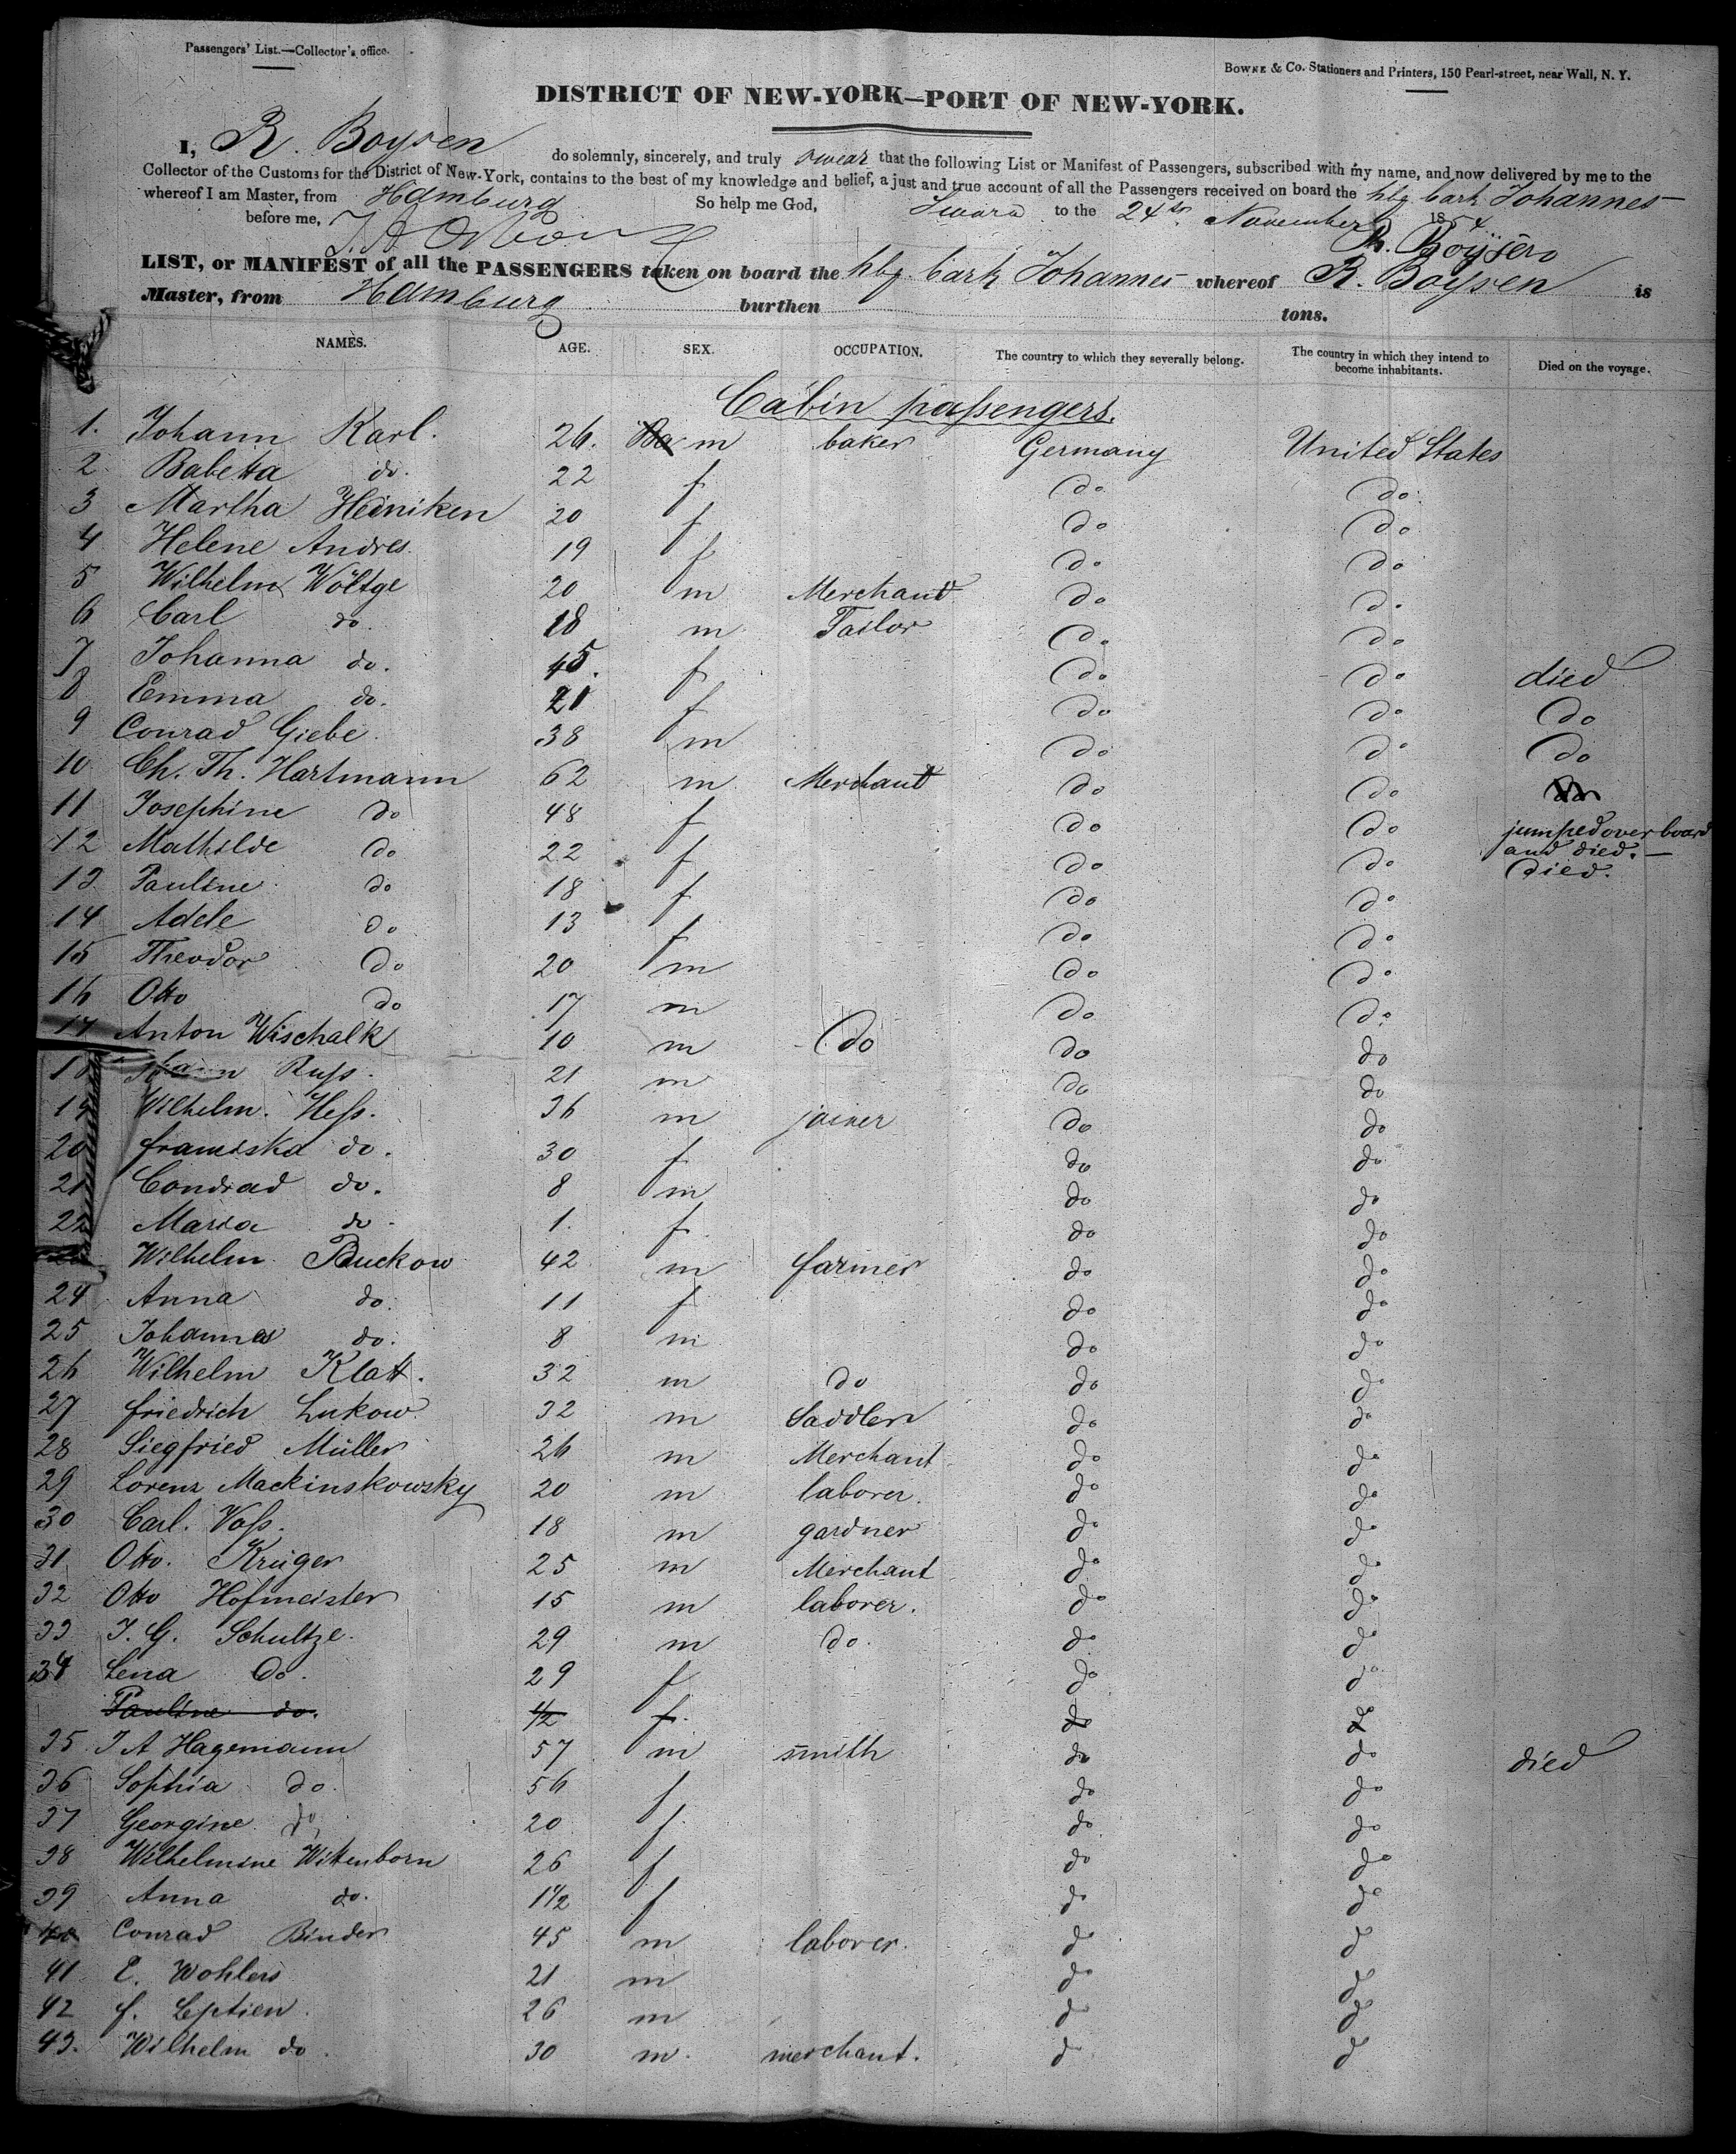 Passengers' List.—Collector's office.
BOWNE & Co. Stationers and Printers, 150 Pearl-street, near Wall, N. Y.
DISTRICT OF NEW-YORK—PORT OF NEW-YORK.
I, R. Boysen do solemnly, sincerely, and truly swear that the following List or Manifest of Passengers, subscribed with my name, and now delivered by me to the
Collector of the Customs for the District of New-York, contains to the best of my knowledge and belief, a just and true account of all the Passengers received on board the hbg bark Johannes
whereof I am Master, from Hamburg So help me God, Sworn to the 24th November 1854
before me, R. Boysen
LIST, or MANIFEST of all the PASSENGERS taken on board the hbg. bark Johannes whereof R. Boysen is
Master, from Hamburg burthen tons.
NAMES. AGE. SEX. OCCUPATION. The country to which they severally belong. The country in which they intend to become inhabitants. Died on the voyage.
Cabin passengers.
1. Johann Karl. 26. m baker Germany United States
2 Babetta do. 22 f do do
3 Martha Heiniken 20 f do do
4 Helene Andres. 19 f do do
5 Wilhelm Wöltge 20 m Merchant do do
6 Carl do 18 m Tailor do do
7 Johanna do. 45. f do do died
8 Emma do. 21 f do do do
9 Conrad Giebe. 38 m do do do
10 Ch. Th. Hartmann 62 m Merchant do do do
11 Josephine do 48 f do do jumped over board and died.—
12 Mathilde do 22 f do do died.
13 Pauline do 18 f do do
14 Adele do 13 f do do
15 Theodor do 20 m do do
16 Otto do 17 m do do
17 Anton Wischalk 10 m do do do
18 Russ. 21 m do do
19 Wilhelm. Hess. 36 m joiner do do
20 franziska do. 30 f do do
21 Condrad do. 8 m do do
22 Maria do 1. f do do
Wilhelm Buckow 42 m farmer do do
24 Anna do. 11 f do do
25 Johannes do. 8 m do do
26 Wilhelm Klatt. 32 m do do do
27 friedrich Lukow 32 m Saddler do do
28 Siegfried Müller 26 m Merchant do do
29 Lorenz Mackinskowsky 20 m laborer. do do
30 Carl. Voss. 18 m gardner do do
31 Otto. Krüger 25 m Merchant do do
32 Otto Hofmeister 15 m laborer. do do
33 J. G. Schultze. 29 m do. do do
34 Lena do. 29 f do do
Pauline do. 1/2 f. do do
35. J A Hagemann 57 m smith do do died
36 Sophia do. 56 f do do
37 Georgine do 20 f do do
38 Wilhelmine Wittenborn 26 f do do
39 Anna do. 1 1/2 f do do
40 Conrad Binder 45 m laborer. do do
41 E. Wohlers 21 m do do
42 f. Leptien. 26 m do do
43. Wilhelm do. 30 m. merchant. do do